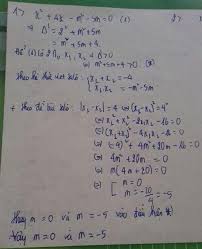 1> x² + 4x - m² - 5m = 0 (1) 2>
=> Δ' = 2² + m² + 5m
= m² + 5m + 4
Để (1) có 2 n₀ x₁, x₂ Δ' > 0
(=) m² + 5m + 4 > 0 (*)
Theo hệ thức viét có:
{ x₁ + x₂ = -4
x₁x₂ = -m² - 5m
+ theo đề bài có: |x₁ - x₂| = 4 (=) (x₁ - x₂)² = 4²
(=) x₁² + x₂² - 2x₁x₂ - 16 = 0
(=) (x₁ + x₂)² - 4x₁x₂ - 16 = 0
(=) (-4)² + 4m² + 20m - 16 = 0
(=) 4m² + 20m = 0
(=) m(4m + 20) = 0
(=) [ m = 0
m = = -5
thay m = 0 và m = -5 vào
Vậy m = 0 và m = -5